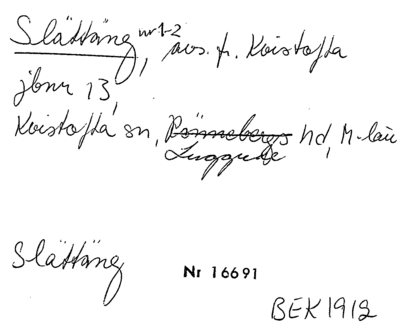 Slättäng nr 1-2, avs. fr. Kvistofta
jbnr 13,
Kvistofta sn, Rönnebergs hd, M-län
Luggude
Slättäng
Nr 16691
BEK 1912